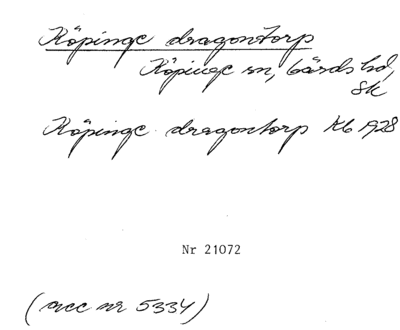 Köpinge dragontorp
Köpinge sn, Gärds hd,
Sk
Köpinge dragontorp Kb 1928
Nr 21072
(acc nr 5334)